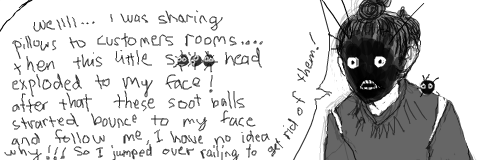 wellll... I was sharing
pillows to customers rooms....
then this little head
exploded to my face!
after that these soot balls
strarted bounce to my face
and follow me, I have no idea
why!!! So I jumped over railing to get rid of them!